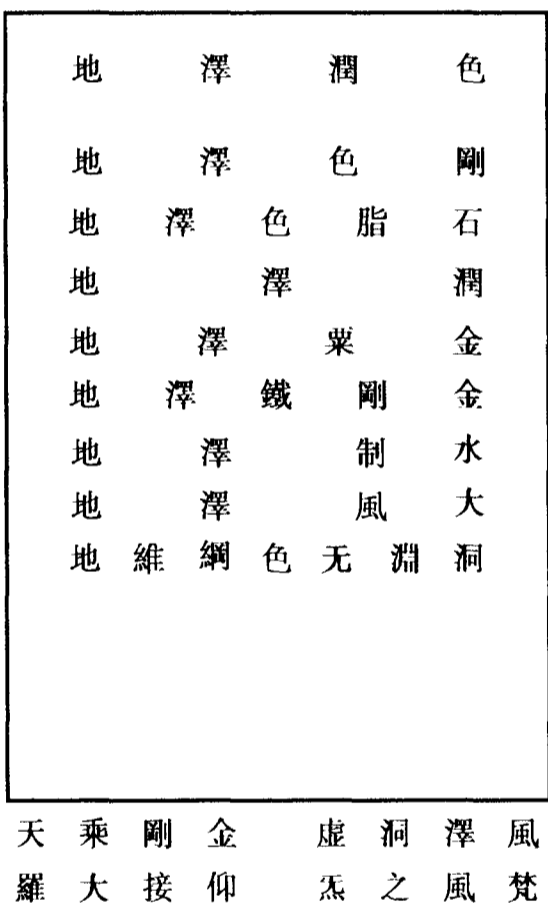 色潤澤地
剛色澤地
石脂色澤地
潤澤地
金粟澤地
金剛鐵澤地
水制澤地
大風澤地
洞淵无色綱維地
風澤洞虛 金剛乘天
梵風之炁 仰接大羅